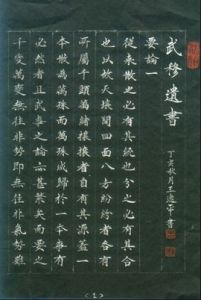 武穆遺書
丁亥秋月王
書
要論一
從來散之必有其統也分之必有其合
也以故天壤間四面八方紛紛者各有
所屬千頭萬緒攘攘者自有其源蓋一
本散為萬殊而萬殊咸歸於一本事有
必然者且武事之論亦甚繁矣而要之
千變萬變無往非勢即無往非氣勢雖
<1>